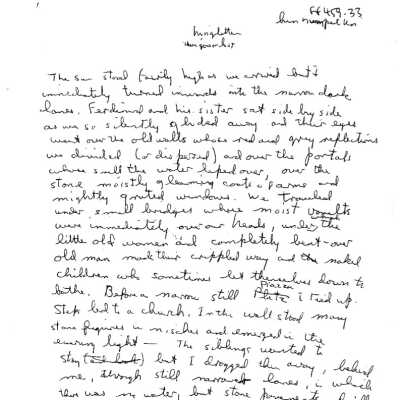 The sun stood fairly high as we arrived but I
immediately turned inwards into the narrow dark
lanes. Ferdinand and his sister sat side by side
as we so silently glided away and their eyes
went over the old walls whose red and grey reflections
we divided (or dispersed) and over the portals
whose sills the water lapped over, over the
stone moistly gleaming coats of arms and
mightily grated windows. We traveled
under small bridges whose moist vaults
were immediately over our heads, under the
little old women and completely bent-over
old man made their crippled way and the naked
children who sometimes let themselves down to
bathe. Before a narrow still Piazza I tied up.
Steps led to a church. In the wall stood many
stone figures in niches and emerged in the
evening light — The siblings wanted to
stay but I dragged them away, behind
me, through still narrower lanes, in which
there was no water, but stone